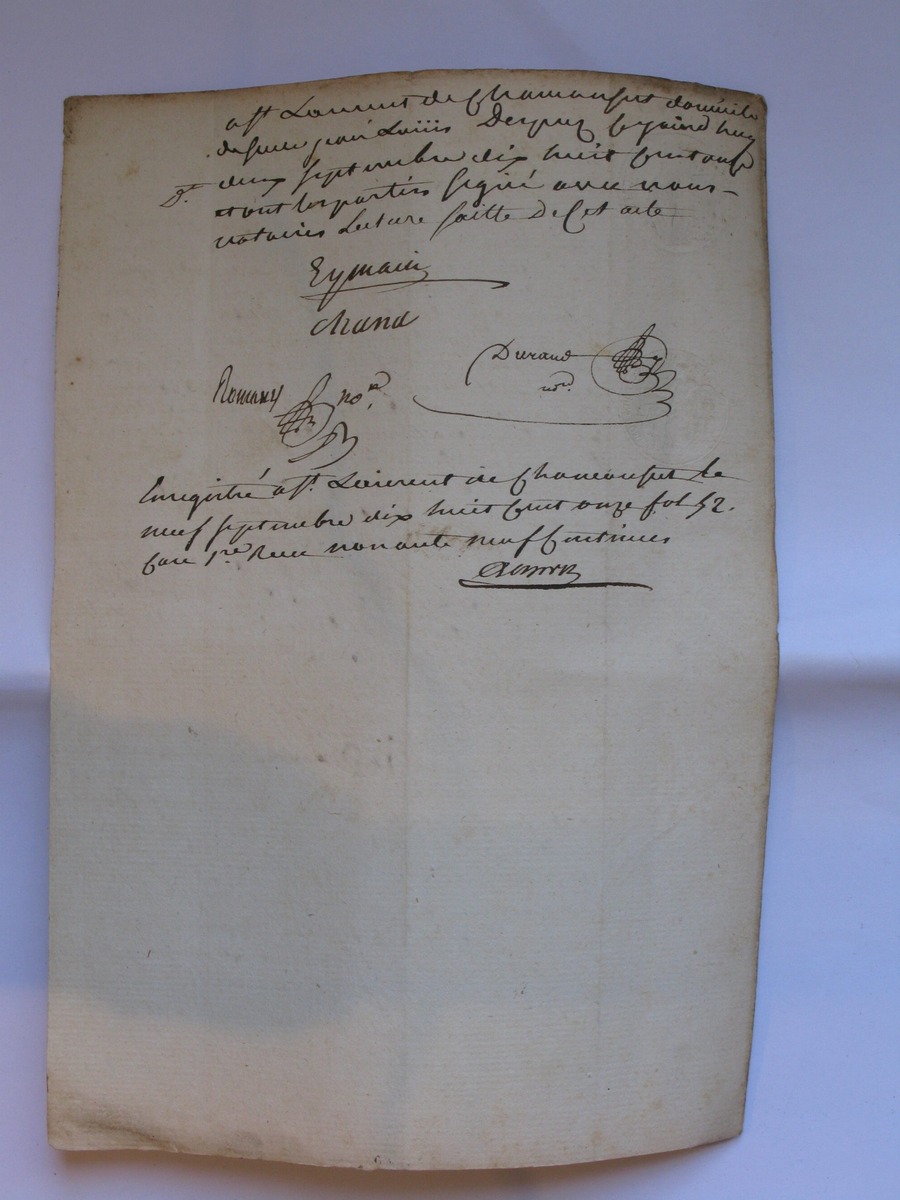 a St Laurent de Chamousset domicile
de sieur jean Louis Despuy ce jourd huy
Dt deux septembre dix huit cent onze
et ont les parties signé avec nous
notaires Lecture faitte De Cet acte
Eymain
chana
Durand
nore
nore
Enregistré a St. Laurent de Chamousset le
neuf septembre dix huit cent onze fol 52.
Case 1re Reçu nonante neuf Centimes